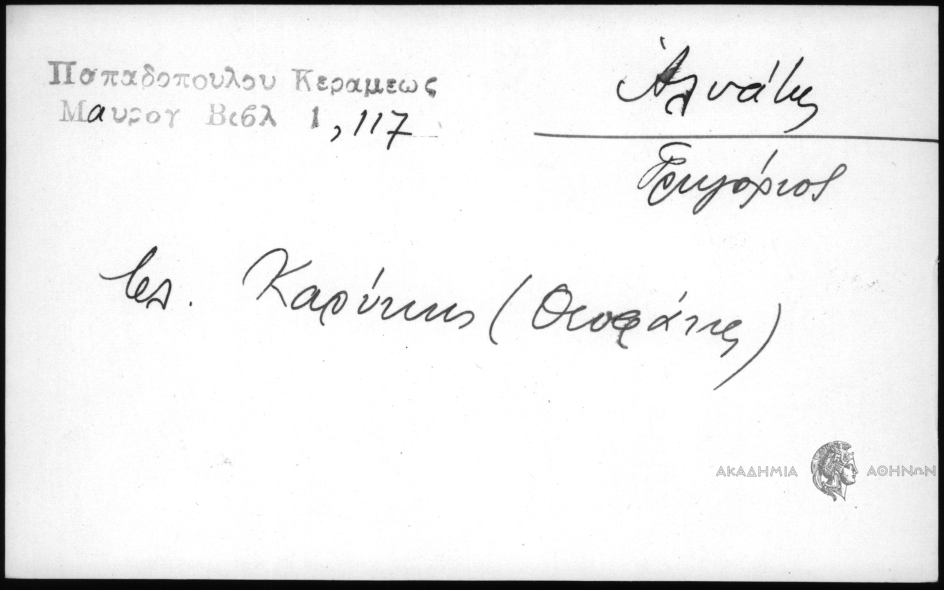 Παπαδοπουλου Κεραμεως
Μαυρογ Βιβλ 1, 117
Γρηγόριος
Καρύτης (Θεοφάνης)
ΑΚΑΔΗΜΙΑ ΑΘΗΝΩΝ